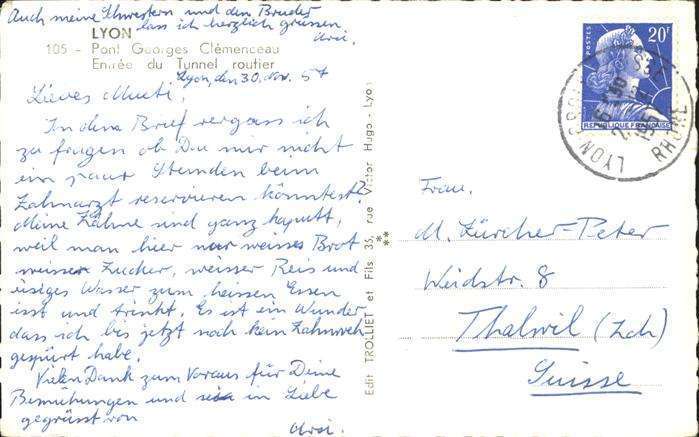 Auch meine Schwestern und den Bruder
lass ich herzlich grüssen
LYON
105 - Pont Georges Clémenceau
Entrée du Tunnel routier
Lyon, den 30. Nov. 57
Liebes Mutti,
In dem Brief vergass ich
zu fragen ob Du mir nicht
ein paar Stunden beim
Zahnarzt reservieren könntest?
Meine Zähne sind ganz kaputt,
weil man hier nur weisses Brot
weisser Zucker, weisser Reis und
eisiges Wasser zum heissen Essen
isst und trinkt. Es ist ein Wunder
dass ich bis jetzt noch kein Zahnweh
gespürt habe.
Vielen Dank zum Voraus für Deine
Bemühungen und sei in Liebe
gegrüsst von
Edit TROLLIET et Fils 35, rue Victor Hugo - Lyon
POSTES
20F
REPUBLIQUE FRANÇAISE
LYON
RHONE
Frau.
M. Zürcher-Peter
Weidstr. 8
Thalwil (Zch)
Suisse